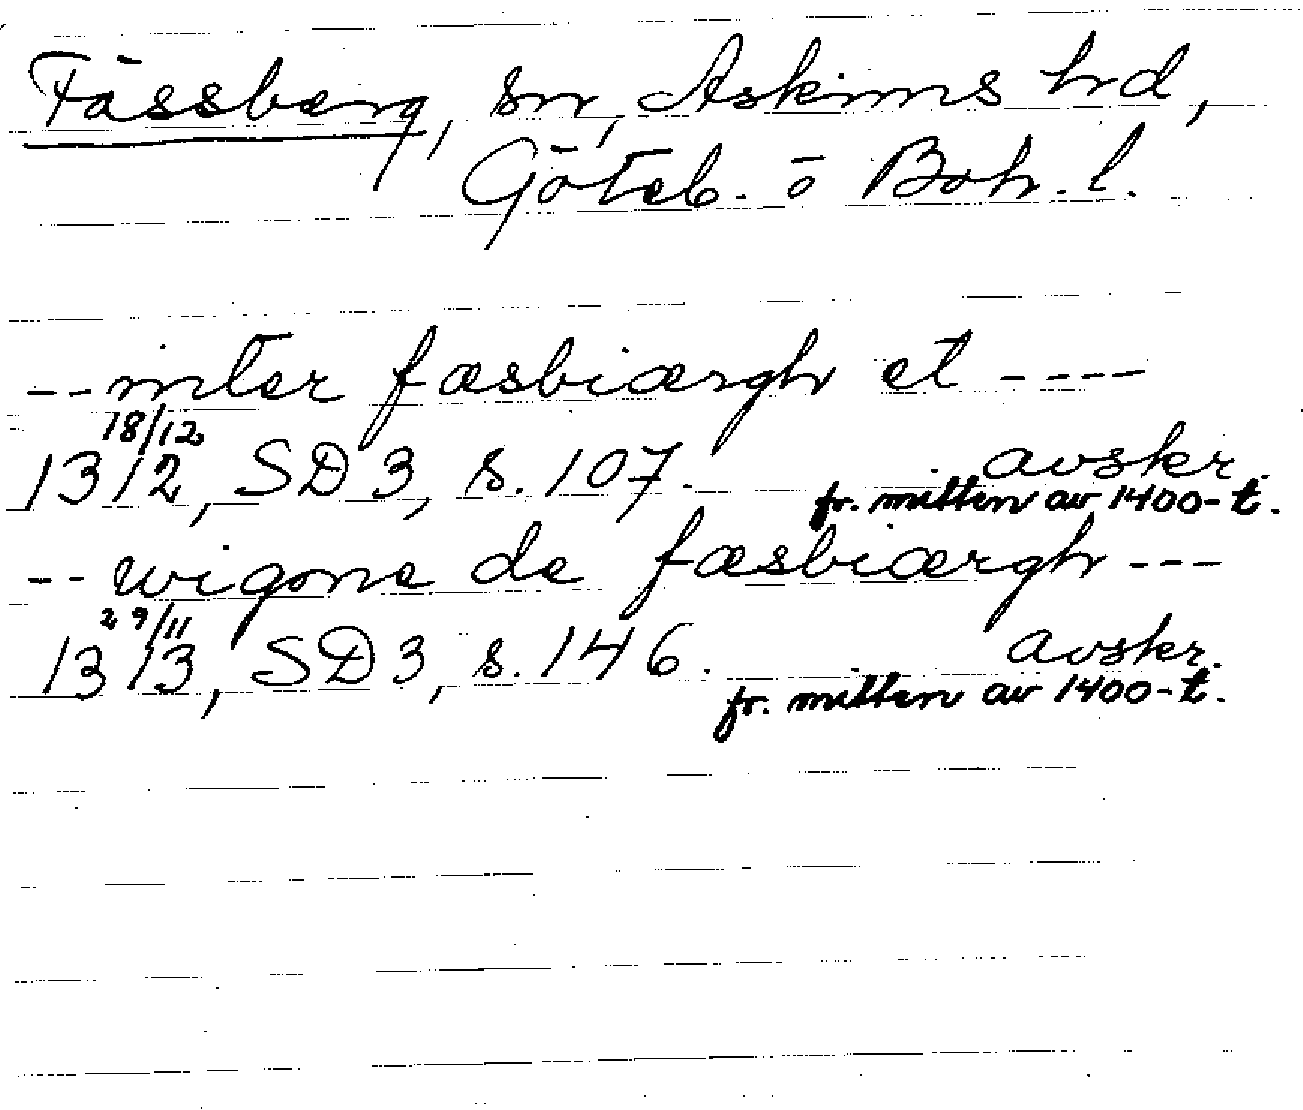 Fässberg, sn, Askims hd,
Göteb. o Boh. l.
-- inter fæsbiærgh et ----
18/12
1312, SD 3, s. 107. avskr.
fr. mitten av 1400-t.
-- wigone de fæsbiærgh ---
29/11
1313, SD 3, s. 146. avskr.
fr. mitten av 1400-t.